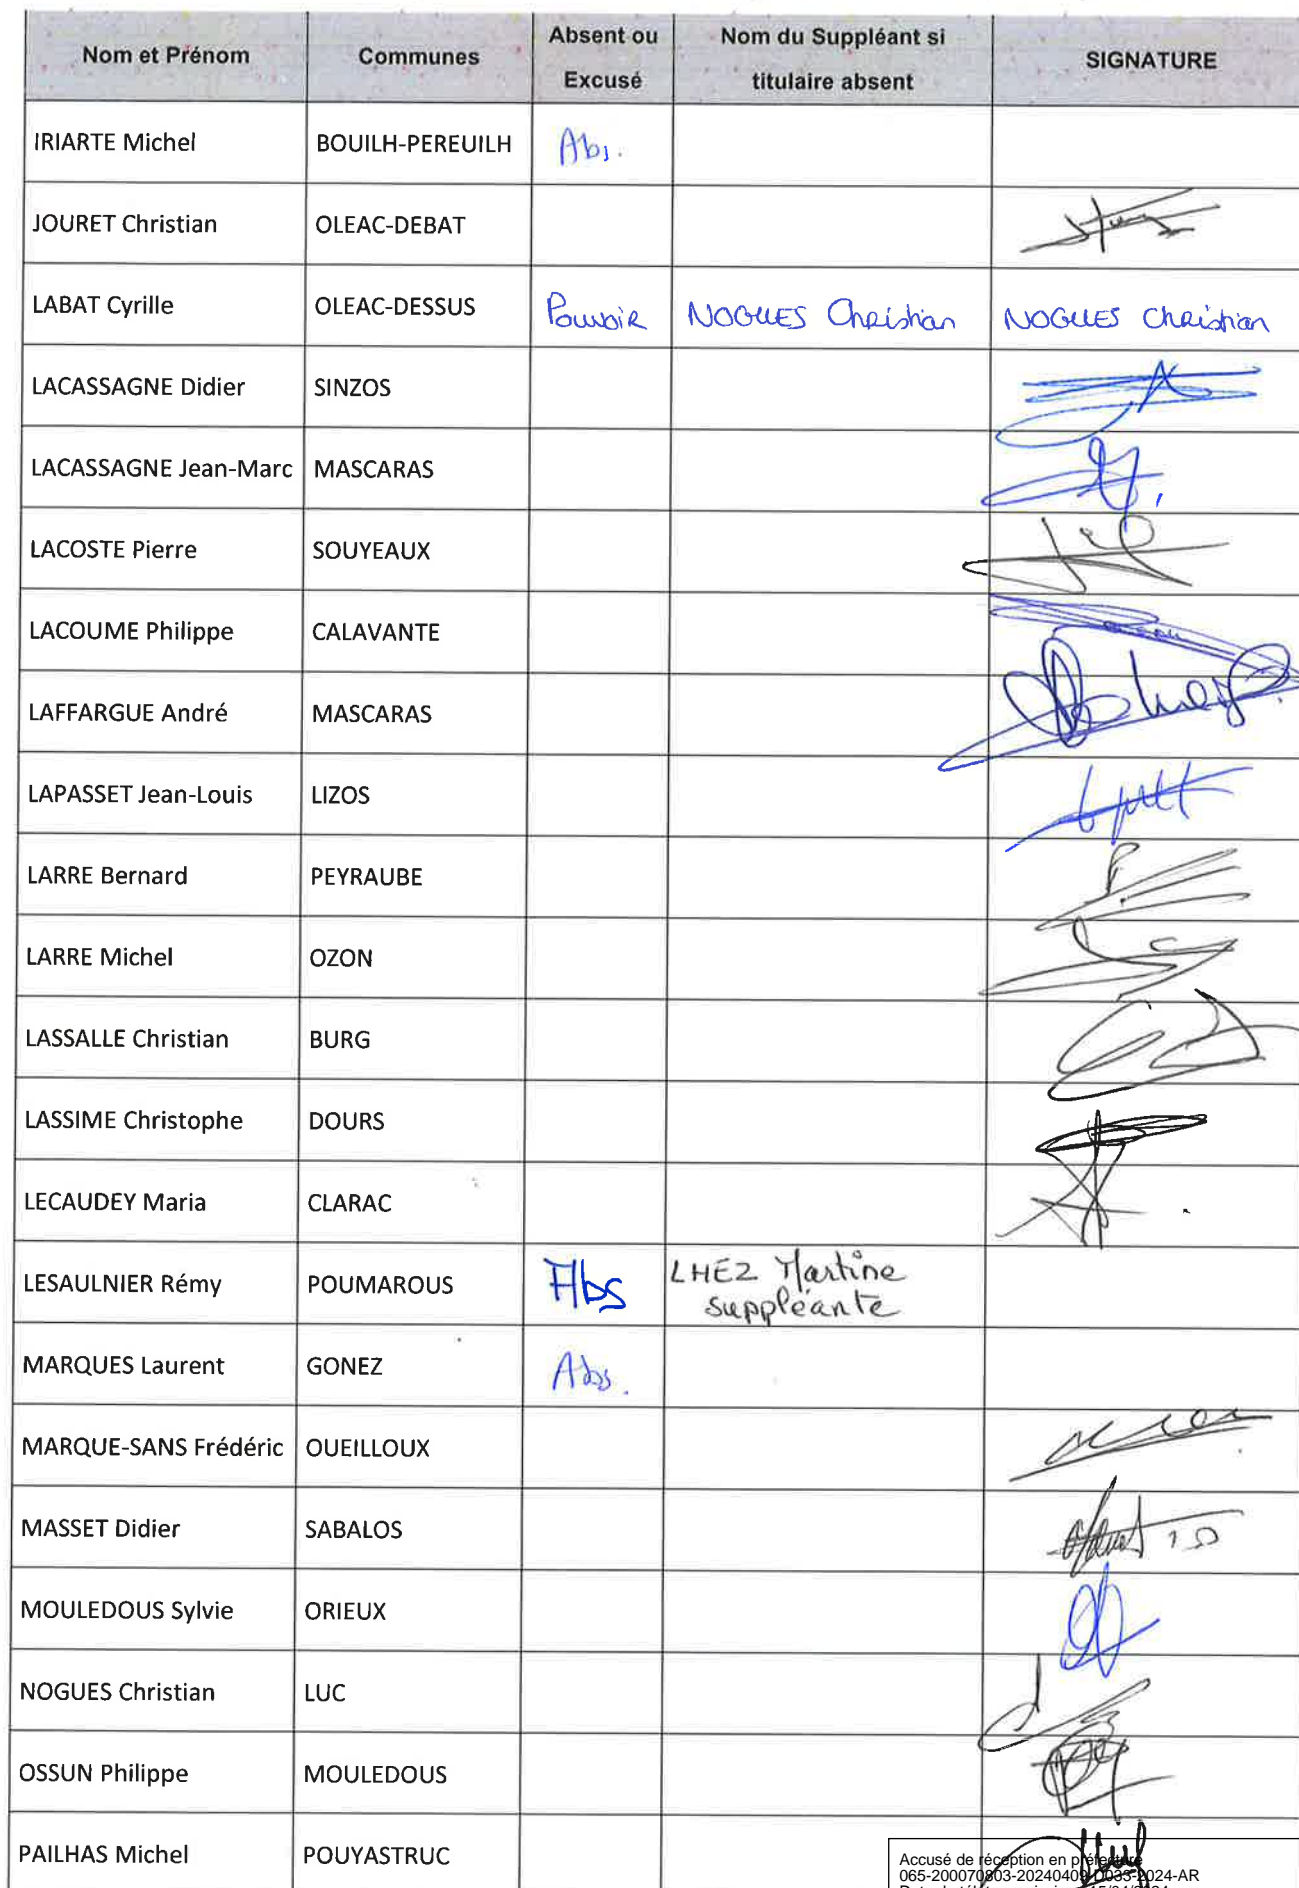 Nom et Prénom Communes Absent ou Excusé Nom du Suppléant si titulaire absent SIGNATURE
IRIARTE Michel BOUILH-PEREUILH Abs.
JOURET Christian OLEAC-DEBAT
LABAT Cyrille OLEAC-DESSUS Pouvoir NOGUES Christian NOGUES Christian
LACASSAGNE Didier SINZOS
LACASSAGNE Jean-Marc MASCARAS
LACOSTE Pierre SOUYEAUX
LACOUME Philippe CALAVANTE
LAFFARGUE André MASCARAS
LAPASSET Jean-Louis LIZOS
LARRE Bernard PEYRAUBE
LARRE Michel OZON
LASSALLE Christian BURG
LASSIME Christophe DOURS
LECAUDEY Maria CLARAC
LESAULNIER Rémy POUMAROUS Abs LHEZ Martine suppléante
MARQUES Laurent GONEZ Abs.
MARQUE-SANS Frédéric OUEILLOUX
MASSET Didier SABALOS
MOULEDOUS Sylvie ORIEUX
NOGUES Christian LUC
OSSUN Philippe MOULEDOUS
PAILHAS Michel POUYASTRUC
Accusé de réception en préfecture
065-200070803-20240409-D033-2024-AR